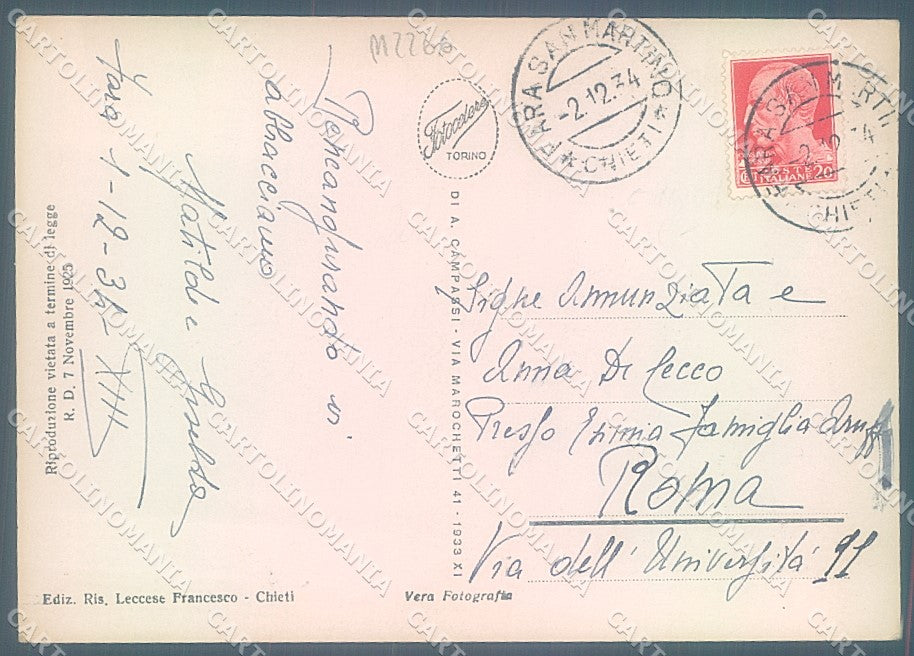 M2266
FARA SAN MARTINO
-2.12.34
* CHIETI *
FARA SAN MARTI
-2.12.34
CHIETI
ITALIANE 20
Fotocelere
TORINO
Ripensandovi
abbracciamo
Matilde
Fara 1-12-34 XIII
Riproduzione vietata a termine di legge
R. D. 7 Novembre 1925
DI A. CAMPASSI - VIA MAROCHETTI 41 - 1933 XI
Sigre Annunziata e
Anna Di Cecco
Presso Esima Famiglia
Roma
Via dell' Università 11
Ediz. Ris. Leccese Francesco - Chieti
Vera Fotografia
CARTOLINOMANIA